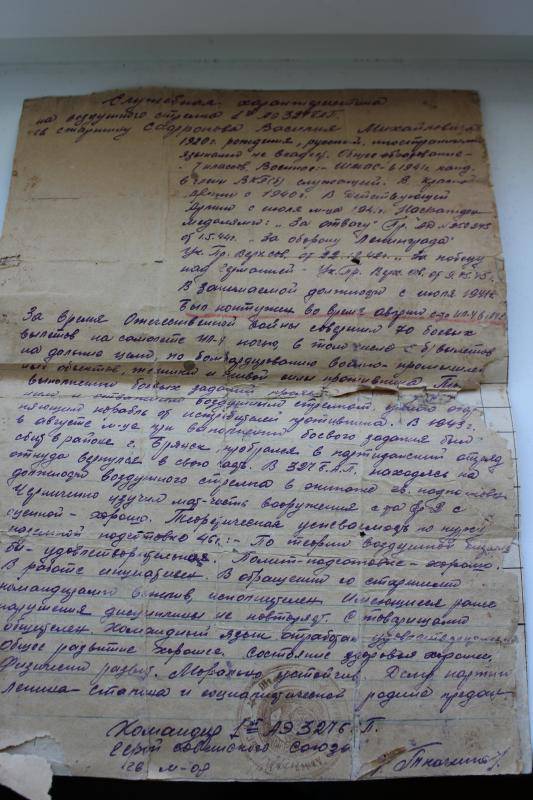 Служебная характеристика
на воздушного стрелка 1ой АЭ 327 БАП
гв старшину Сафронова Василия Михайловича
1920г. рождения, русский, иностранными
языками не владеет. Общее образование -
7 классов, Военное: - ШМАС в 1941г. канд.
в члены ВКП(б), служащий. В Красной
армии с 1940г. В действующей
Армии с июля м-ца 1941г. Награжден
медалями: "За отвагу" Пр.
от 1.5.44г. "За оборону Ленинграда"
Ук. Пр. Верх. Сов. от 22.12.42г. "За победу
над Германией" - Ук. Пр. Верх. Сов. от 9.5.45.
В занимаемой должности с июля 1941г.
Был контужен во время аварии с-та ИЛ-4 в
За время Отечественной войны совершил 70 боевых
вылетов на самолете ИЛ-4 ночью, в том числе вылетов
на дальние цели, по бомбардированию военно-промышлен
ных объектов, техники и живой силы противника.
выполнении боевых заданий
воздушным стрелком,
корабль от истребителей противника. В 1943г.
в августе м-це при выполнении боевого задания был
сбит в районе г. Брянск, пробрался в партизанский отряд
откуда вернулся в свою часть. В 327 БАП, находясь на
должности воздушного стрелка в экипаже гв. подполковн.
Черниченко изучил мат-часть вооружения с-та
оценкой - хорошо. Теоретическая успеваемость по курсу
наземной подготовки 46г.: - По теории воздушной
бы - удовлетворительная. Полит-подготовке - хорошо.
В работе инициативен. В обращении со старшими
командирами вежлив, исполнителен. Имеющиеся ранее
нарушения дисциплины не повторял. С товарищами
общителен. Командный язык отработан удовлетворительно
Общее развитие хорошее, состояние здоровья хорошее,
Физически развит. Морально устойчив. Делу партии
Ленина - Сталина и социалистической родине предан.
Командир 1ой АЭ 327 БАП.
Герой Советского Союза
гв м-ор